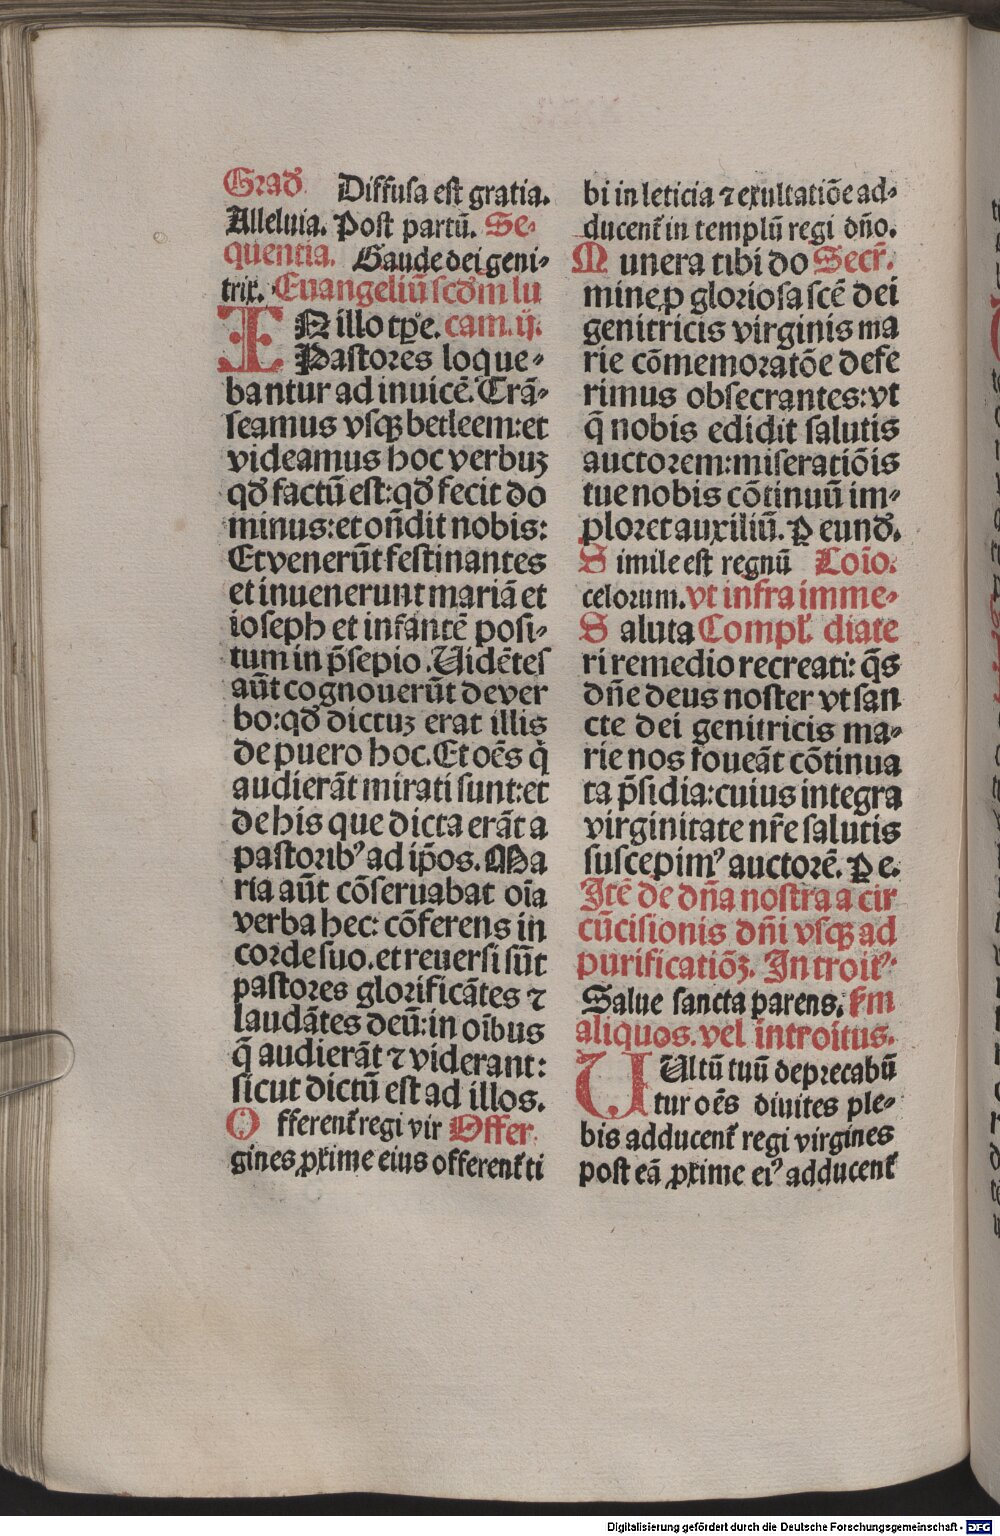 Grad̄. Diffusa est gratia.
Alleluia. Post partū. Se⸗
quentia. Gaude dei geni⸗
trix. Euangeliū scd̄m lu
IN illo tp̄e. cam. ij.
Pastores loque⸗
bantur ad inuicē. Trā⸗
seamus vsqꝫ betleem: et
videamus hoc verbuꝫ
qd̄ factū est: qd̄ fecit do
minus: et on̄dit nobis:
Et venerūt festinantes
et inuenerunt mariā et
ioseph et infantē posi⸗
tum in p̄sepio. Uidētes
aūt cognouerūt de ver
bo: qd̄ dictuꝫ erat illis
de puero hoc. Et oēs q̇
audierāt mirati sunt: et
de his que dicta erāt a
pastoribꝰ ad ip̄os. Ma
ria aūt cōseruabat oīa
verba hec: cōferens in
corde suo. et reuersi sūt
pastores glorificātes ⁊
laudātes deū: in oībus
q̄ audierāt ⁊ viderant:
sicut dictū est ad illos.
Offerent̄ regi vir Offer.
gines ꝓxime eius offerent̄ ti
bi in leticia ⁊ exultatiōe ad⸗
ducent̄ in templū regi dn̄o.
Munera tibi do Secr̄.
mine ꝓ gloriosa scē dei
genitricis virginis ma
rie cōmemoratōe defe
rimus obsecrantes: vt
q̄ nobis edidit salutis
auctorem: miseratiōis
tue nobis cōtinuū im⸗
ploret auxiliū. P eund̄.
Simile est regnū Cōio.
celorum. vt infra imme⸗
Saluta Compl̄. diate
ri remedio recreati: q̄s
dn̄e deus noster vt san
cte dei genitricis ma⸗
rie nos foueāt cōtinua
ta p̄sidia: cuius integra
virginitate nr̄e salutis
suscepimꝰ auctorē. P e.
Itē de dn̄a nostra a cir
cūcisionis dn̄i vsqꝫ ad
purificatiōꝫ. Introitꝰ.
Salue sancta parens. scd̄m
aliquos. vel īntroitus.
UUltū tuū deprecabū
tur oēs diuites ple⸗
bis adducent̄ regi virgines
post eā ꝓxime eiꝰ adducent̄
Digitalisierung gefördert durch die Deutsche Forschungsgemeinschaft - DFG